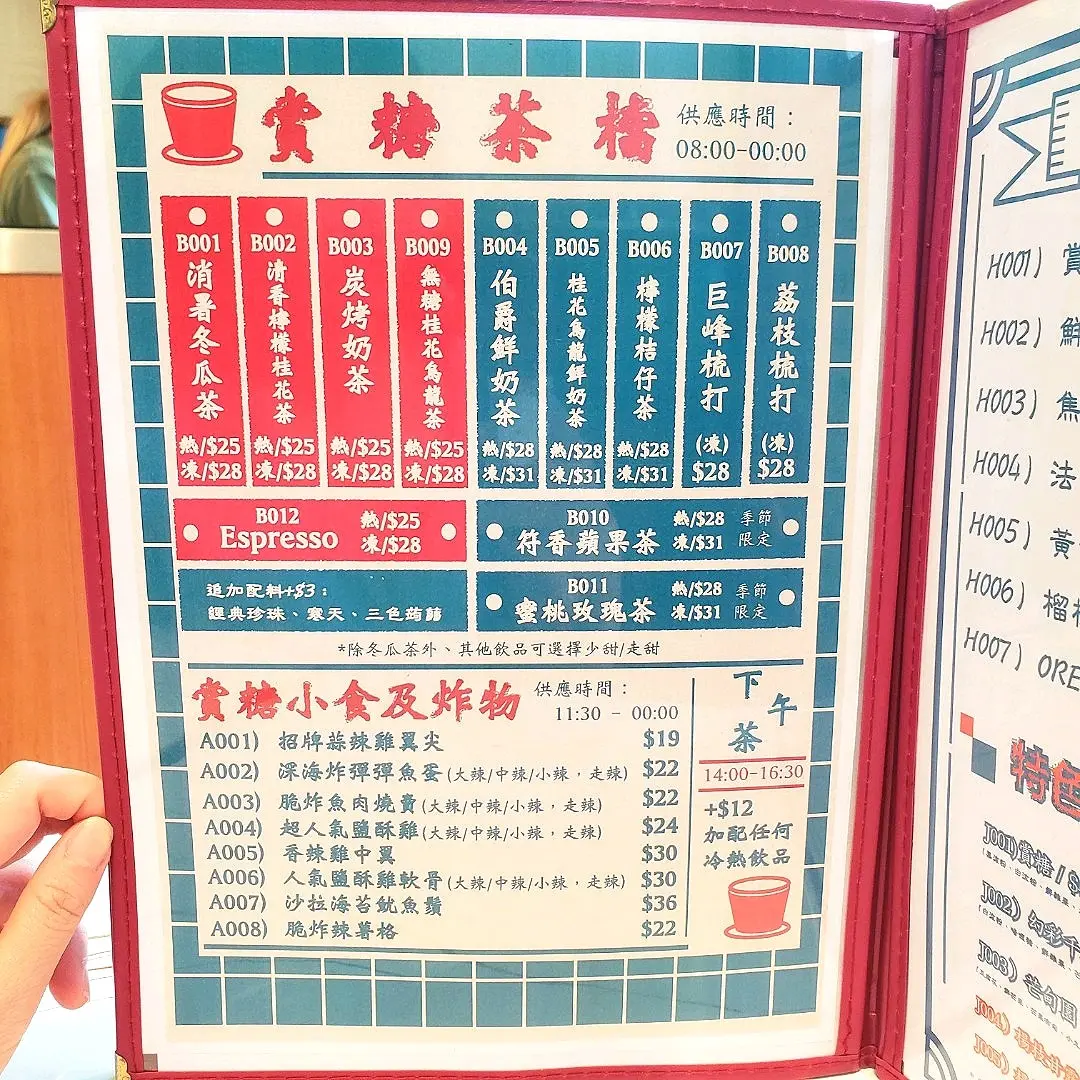 賞糖茶檔
供應時間：
08:00-00:00
B001
消暑冬瓜茶
熱/$25
凍/$28
B002
清香檸檬桂花茶
熱/$25
凍/$28
B003
炭烤奶茶
熱/$25
凍/$28
B009
無糖桂花烏龍茶
熱/$25
凍/$28
B004
伯爵鮮奶茶
熱/$28
凍/$31
B005
桂花烏龍鮮奶茶
熱/$28
凍/$31
B006
檸檬桔仔茶
熱/$28
凍/$31
B007
巨峰梳打
(凍)
$28
B008
荔枝梳打
(凍)
$28
B012
Espresso
熱/$25
凍/$28
B010
符香蘋果茶
熱/$28
凍/$31
季節
限定
追加配料+$3：
經典珍珠、寒天、三色蒟蒻
B011
蜜桃玫瑰茶
熱/$28
凍/$31
季節
限定
*除冬瓜茶外、其他飲品可選擇少甜/走甜
賞糖小食及炸物
供應時間：
11:30 - 00:00
A001) 招牌蒜辣雞翼尖 $19
A002) 深海炸彈彈魚蛋(大辣/中辣/小辣，走辣) $22
A003) 脆炸魚肉燒賣(大辣/中辣/小辣，走辣) $22
A004) 超人氣鹽酥雞(大辣/中辣/小辣，走辣) $24
A005) 香辣雞中翼 $30
A006) 人氣鹽酥雞軟骨(大辣/中辣/小辣，走辣) $30
A007) 沙拉海苔魷魚鬚 $36
A008) 脆炸辣薯格 $22
下午茶
14:00-16:30
+$12
加配任何
冷熱飲品
H001) 賞
H002) 鮮
H003) 焦
H004) 法
H005) 黃
H006) 榴
H007) ORE
特色
J001) 賞糖/$
J002) 幻彩千
J003) 芒旬園
J004) 楊枝甘
J005)